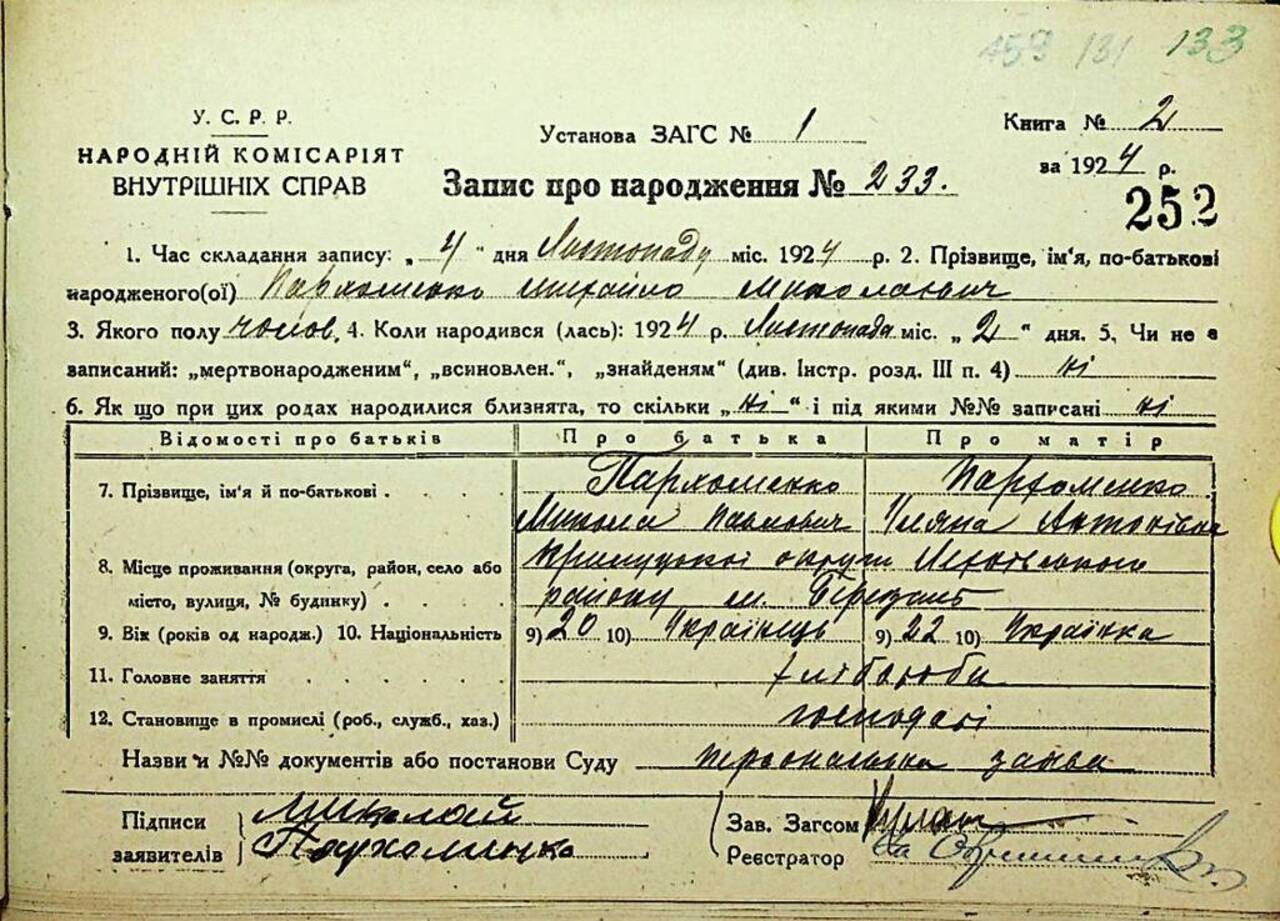 159 131 133
У. С. Р. Р.
НАРОДНІЙ КОМІСАРІЯТ
ВНУТРІШНІХ СПРАВ
Установа ЗАГС № 1
Книга № 2
за 1924 р.
Запис про народження № 233.
252
1. Час складання запису: „ 4 “ дня Листопаду міс. 1924 р. 2. Прізвище, ім'я, по-батькові
народженого(ої) Пархоменко Михайло Миколаович
3. Якого полу чолов. 4. Коли народився (лась): 1924 р. Листопада міс. „ 2 “ дня. 5. Чи не є
записаний: „мертвонародженим“, „всиновлен.“, „знайденям“ (див. Інстр. розд. III п. 4) ні
6. Як що при цих родах народилися близнята, то скільки „ ні “ і під якими №№ записані ні
Відомості про батьків Про батька Про матір
7. Прізвище, ім'я й по-батькові . . . . Пархоменко Пархоменко
Микола Павлович Уляна Антонівна
8. Місце проживання (округа, район, село або Прилуцької округи
місто, вулиця, № будинку) . . . . району м. Березань
9. Вік (років од народж.) 10. Національність 9) 20 10) Українець 9) 22 10) Українка
11. Головне заняття . . . . . . хлібороби
12. Становище в промислі (роб., служб., хаз.) господарі
Назви и №№ документів або постанови Суду персональна заява
Підписи Миколай
заявителів Пархоминко
Зав. Загсом
Реєстратор